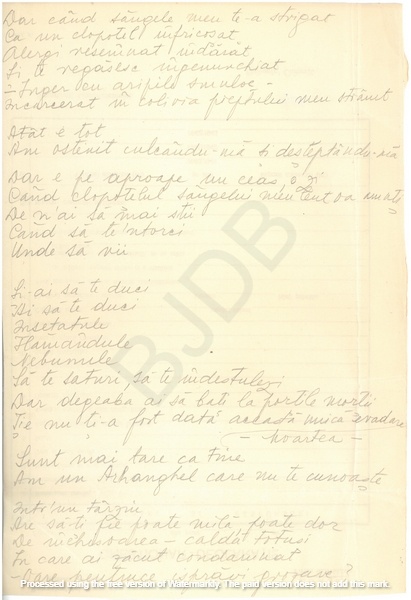 Dar când sângele meu te-a strigat
Ca un clopoțel înfricoșat
Alergi resemnat îndărăt
Și te regăsesc îngenunchiat
– Înger cu aripile smulse –
Incarcerat în colivia pieptului meu strâmt
Atât e tot
Am ostenit culcându-mă și deșteptându-mă
Dar e pe aproape un ceas, o zi
Când clopotelul sângelui meu tent va amuți
De n'ai să mai știi
Când să te'ntorci
Unde să vii
Și-ai să te duci
Ai să te duci
Însetatule
Flămândule
Nebunule
Să te saturi, să te îndestulezi
Dar degeaba ai să bați la porțile morții
Ție nu ți-a fost dată această mică evadare
– moartea –
Sunt mai tare ca tine
Am un Arhanghel care nu te cunoaște
Într'un târziu
Are să-ți fie poate milă, poate dor
De închisoarea – caldă totuși
În care ai zăcut condamnat
BJDB
Processed using the free version of Watermarkly. The paid version does not add this mark.